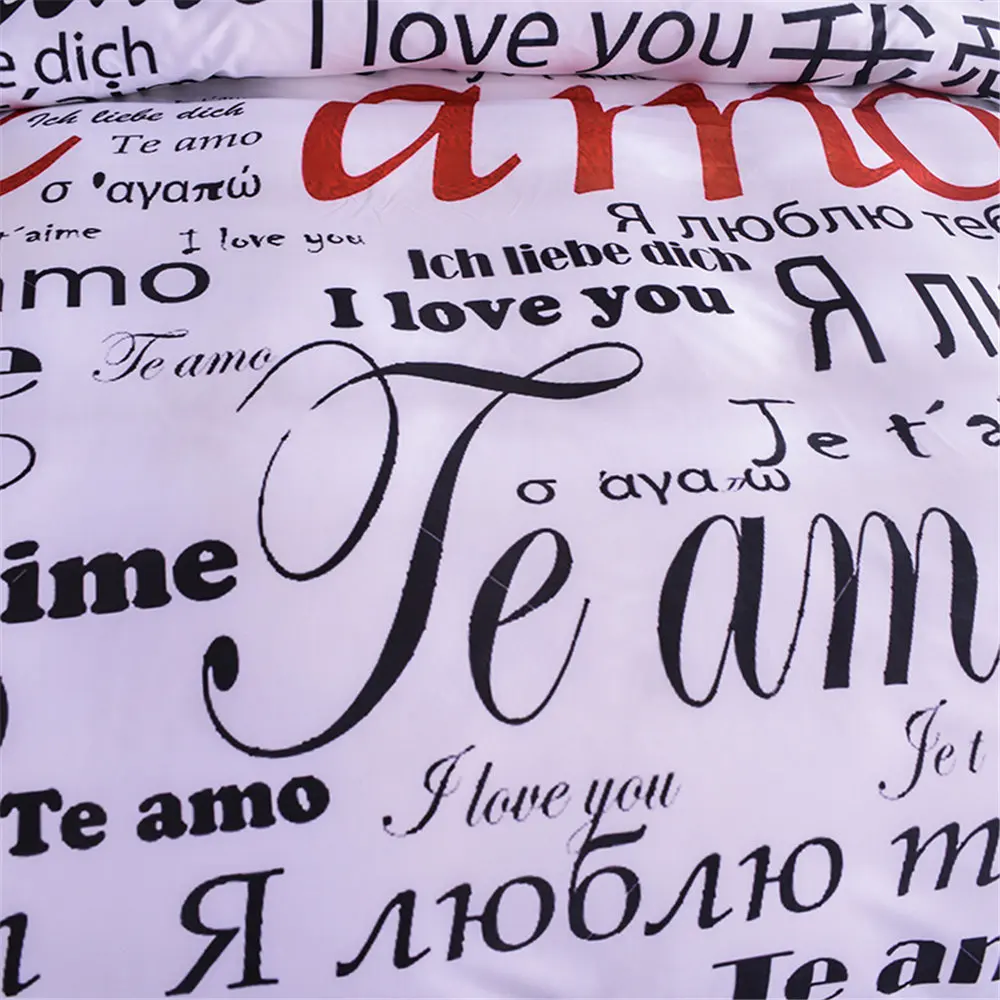 e dich
I love you 我
Ich liebe dich
Te amo
amo
σ 'αγαπώ
t´aime
I love you
Я люблю теб
mo
Ich liebe dich
I love you
Я лю
Te amo
e
Je t´a
σ άγαπώ
Te am
ime
Te amo
I love you
Je t
Я люблю т
Te am